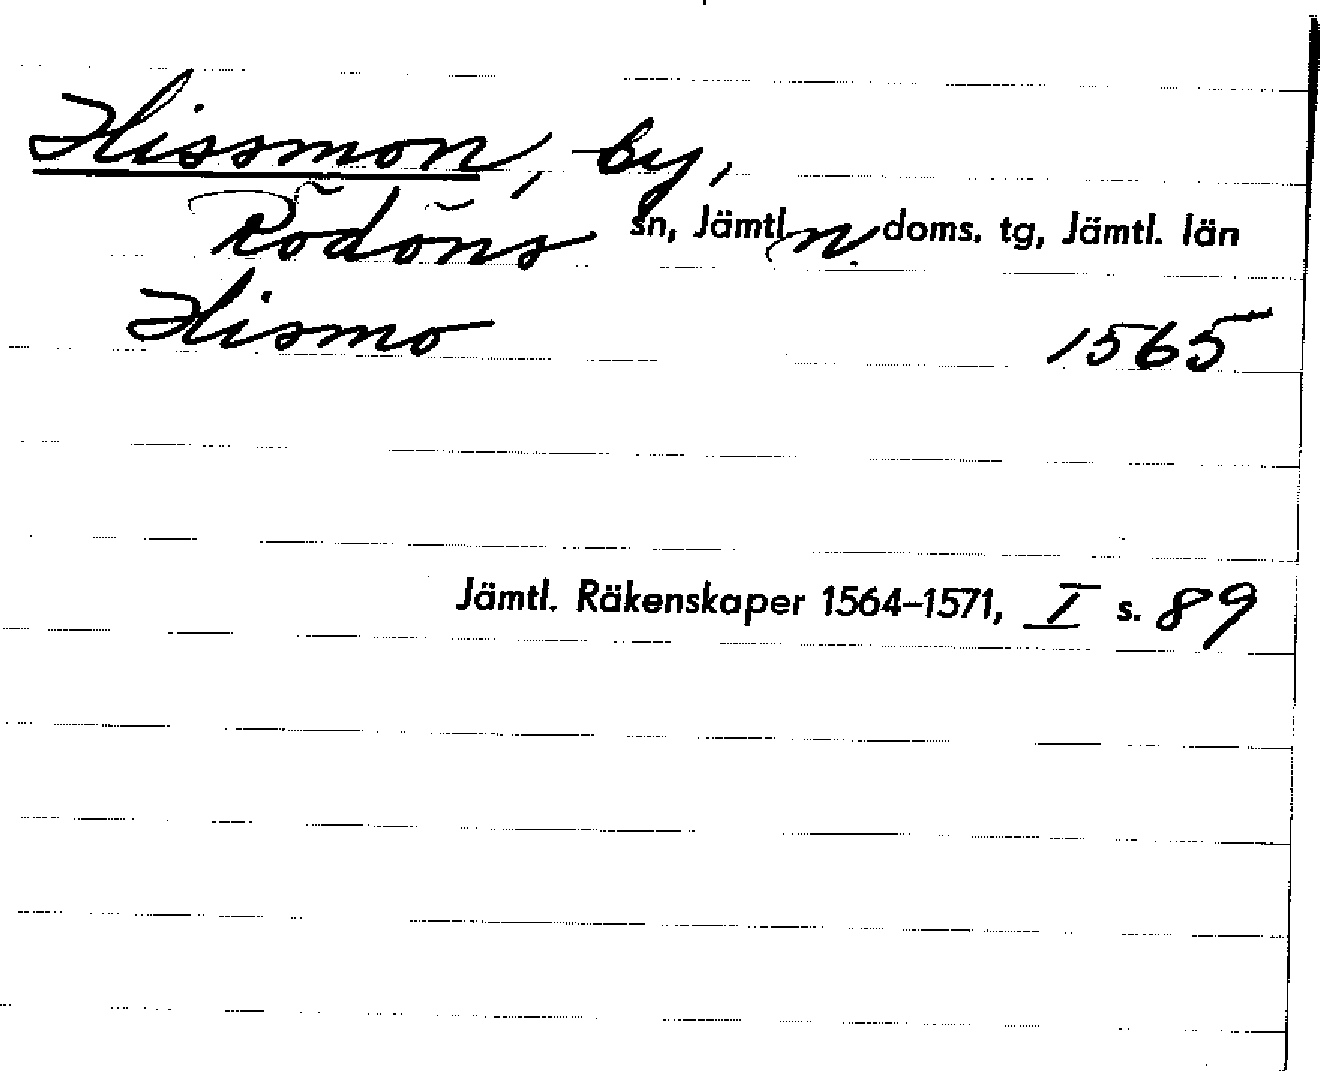 Hissmon, by,
Rödöns sn, Jämtl. n. doms. tg, Jämtl. län
Hismo 1565
Jämtl. Räkenskaper 1564–1571, I s. 89